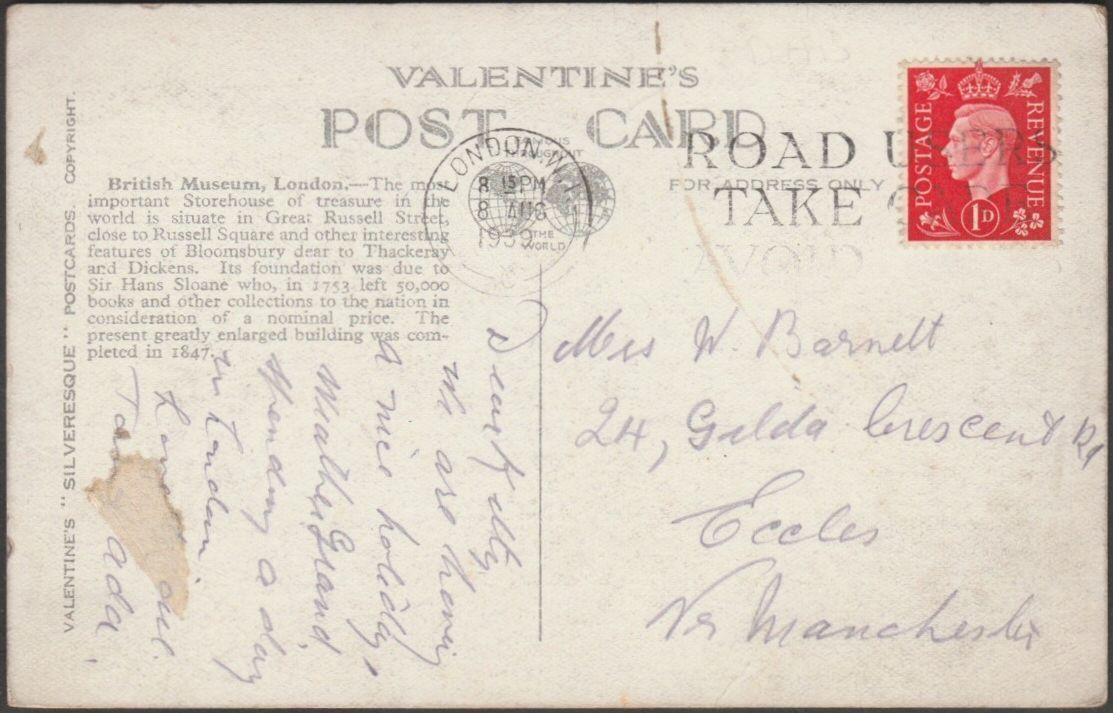 VALENTINE'S
POST CARD
FAMOUS
THROUGHOUT
THE
WORLD
FOR ADDRESS ONLY
VALENTINE'S "SILVERESQUE" POSTCARDS. COPYRIGHT.
British Museum, London.—The most
important Storehouse of treasure in the
world is situate in Great Russell Street,
close to Russell Square and other interesting
features of Bloomsbury dear to Thackeray
and Dickens. Its foundation was due to
Sir Hans Sloane who, in 1753 left 50,000
books and other collections to the nation in
consideration of a nominal price. The
present greatly enlarged building was com-
pleted in 1847.
LONDON. W.1
8 15 PM
8 AUG
1939
ROAD USERS
TAKE CARE
AVOID
POSTAGE
REVENUE
1D
Dear
We are having
a nice holiday,
Weather Grand
spending a day
in London.
Love
Ada.
Mrs W. Barnett
24, Gilda Crescent Rd
Eccles
Nr Manchester